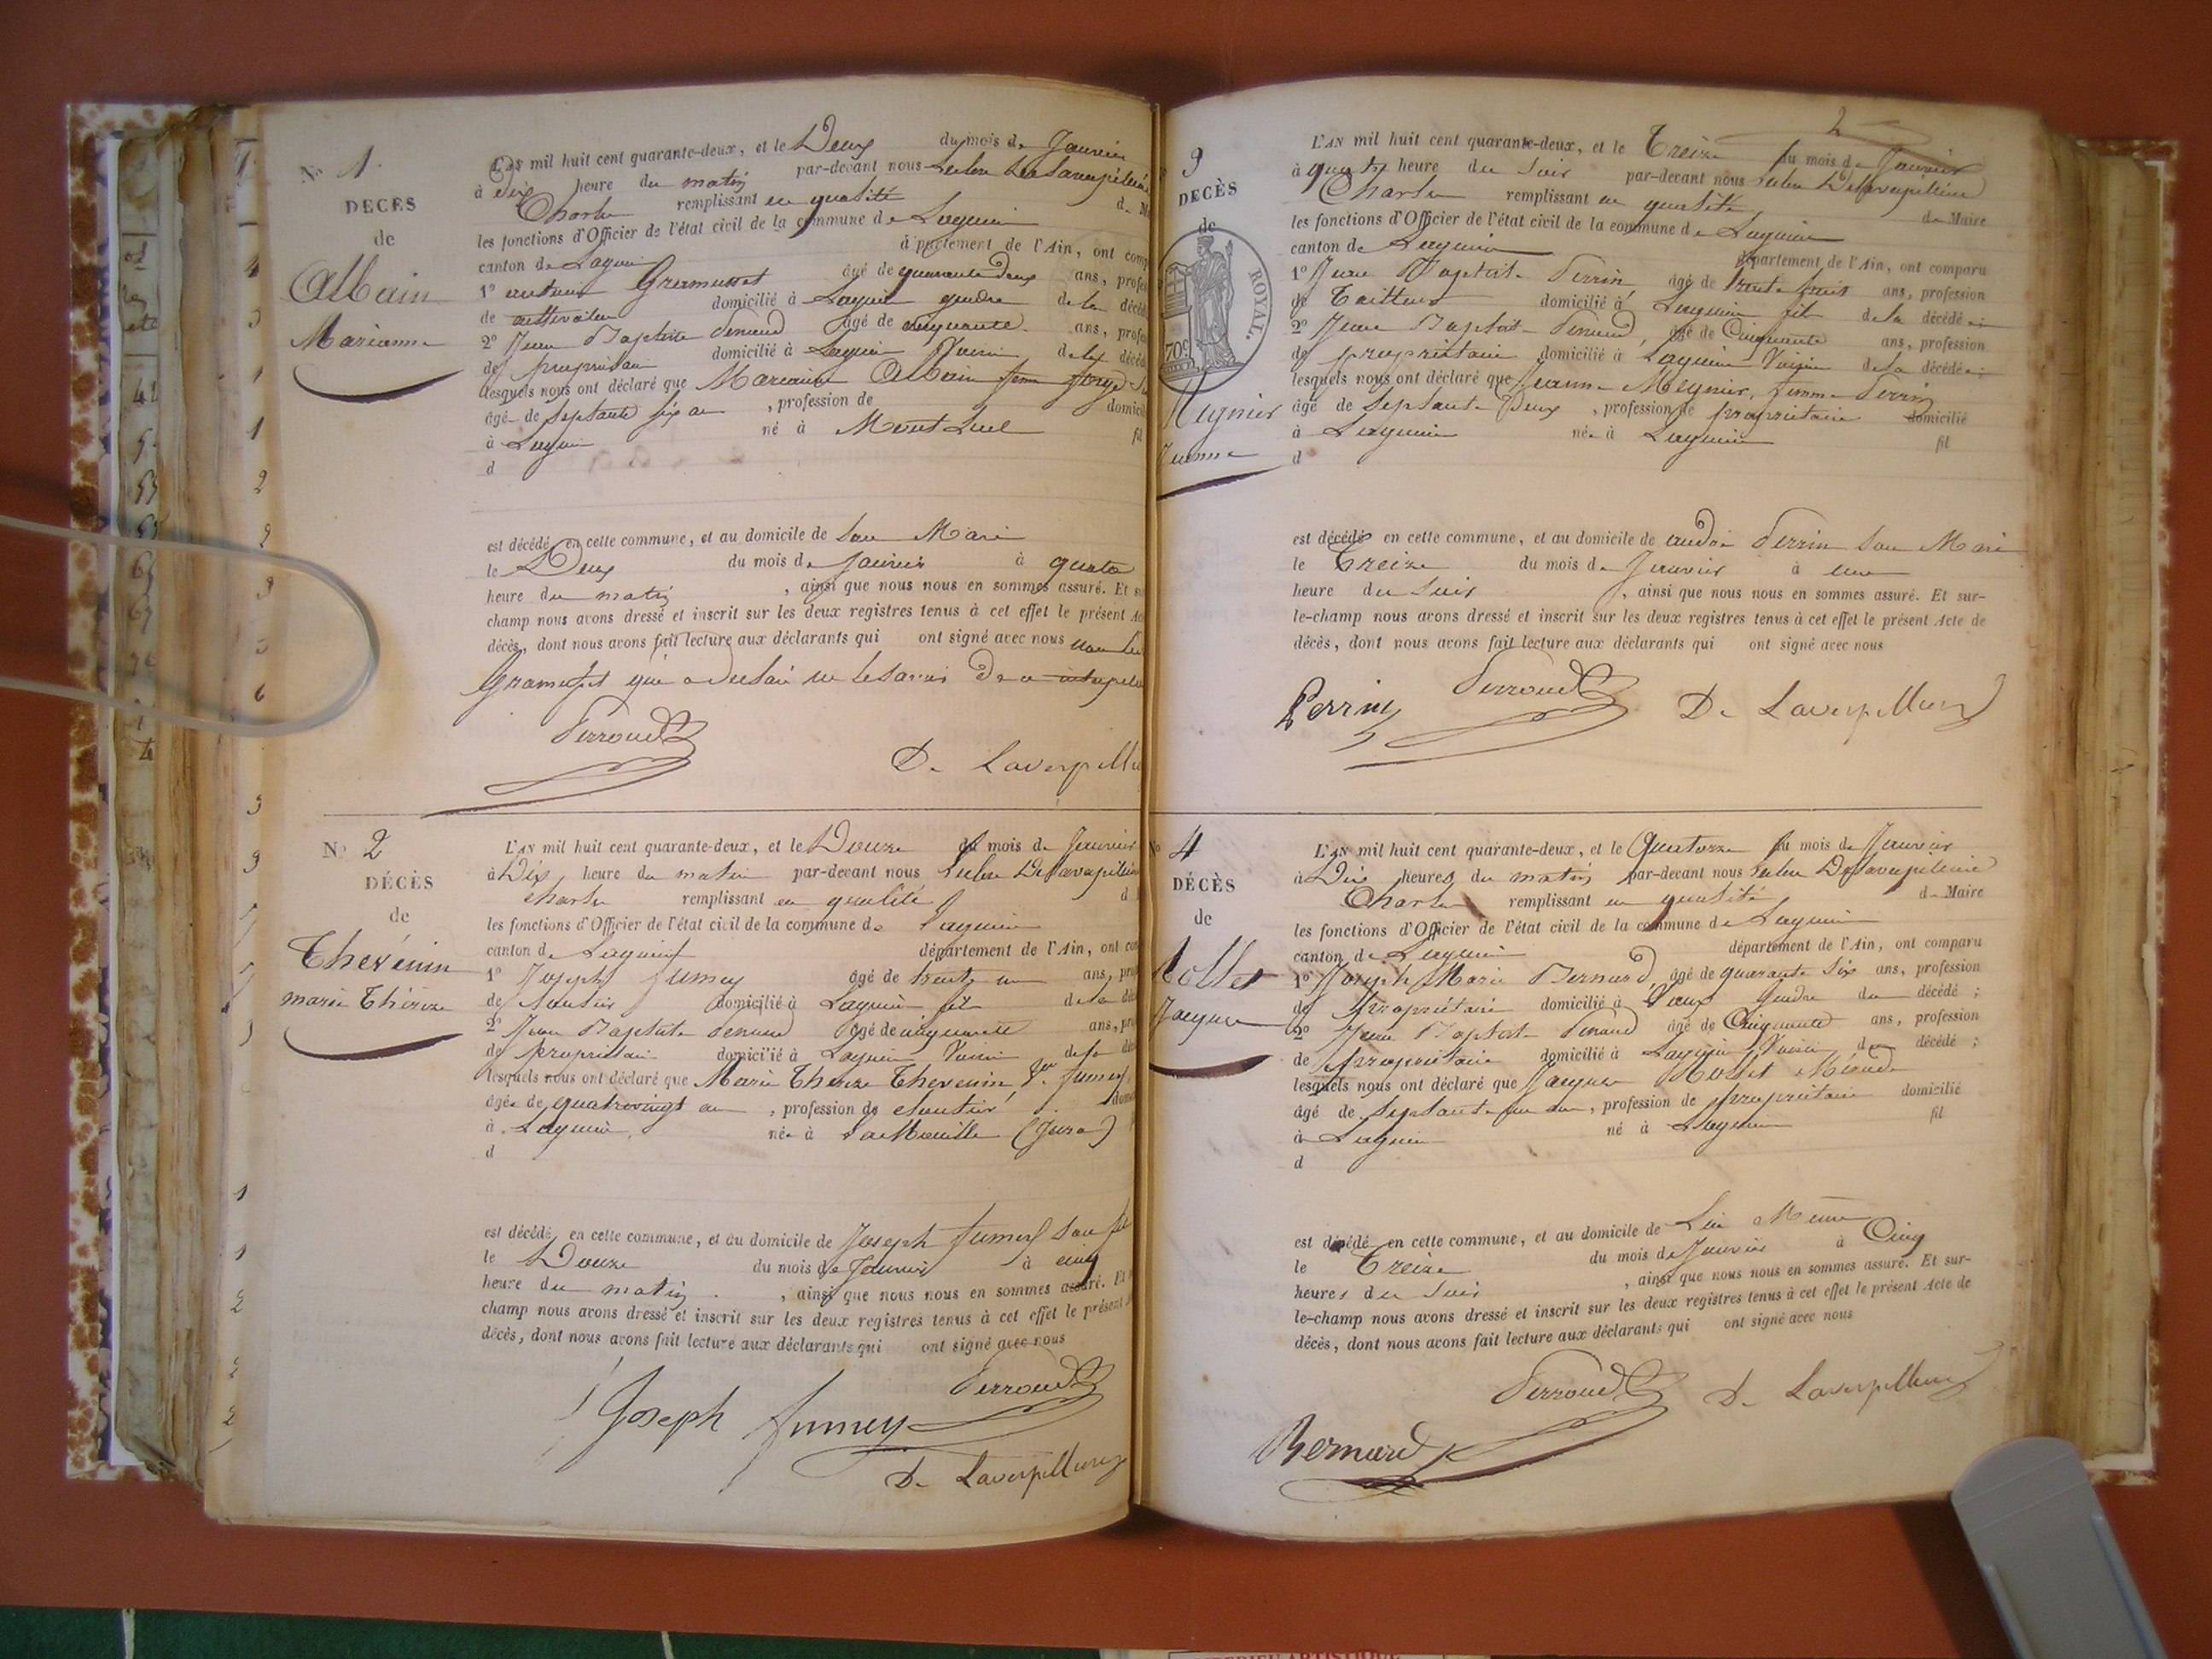 N° 1.
DÉCÈS
de
Albain
Marianne
L'AN mil huit cent quarante-deux, et le Deux du mois de Janvier
à dix heure du matin par-devant nous
Charles remplissant en qualité d
les fonctions d'Officier de l'état civil de la commune de Lagnieu
canton de Lagnieu département de l'Ain, ont
1° antoine Gramusset âgé de quarante deux ans,
de domicilié à Lagnieu gendre de la
2° Jean Baptiste Perroud âgé de cinquante ans,
de propriétaire domicilié à Lagnieu Voisin de la
lesquels nous ont déclaré que Marianne Albain femme
âgé de septante six ans, profession de
à Lagnieu né à Mont Luel
d
est décédé en cette commune, et au domicile de son Mari
le Deux du mois de Janvier à quatre
heure du matin, ainsi que nous nous en sommes assuré. Et
champ nous avons dressé et inscrit sur les deux registres tenus à cet effet le présent
décès, dont nous avons fait lecture aux déclarants qui ont signé avec nous non
Gramusset qui a
Perroud
De Laverpill
N° 2
DÉCÈS
de
Thevenin
marie Thérèze
L'AN mil huit cent quarante-deux, et le Douze du mois de Janvier
à Dix heure du matin par-devant nous
Charles remplissant en qualité d
les fonctions d'Officier de l'état civil de la commune de Lagnieu
canton de Lagnieu département de l'Ain, ont
1° Joseph fumey âgé de trente un ans,
de domicilié à Lagnieu fils de la
2° Jean Baptiste Perroud âgé de cinquante ans,
de propriétaire domicilié à Lagnieu Voisin de la
lesquels nous ont déclaré que Marie Thereze Thevenin Ve fumey
âgée de quatrevingt ans, profession de
à Lagnieu, née à La Mouille (Jura)
d
est décédé en cette commune, et au domicile de Joseph fumey son fils
le Douze du mois de Janvier à cinq
heure du matin, ainsi que nous nous en sommes assuré. Et
champ nous avons dressé et inscrit sur les deux registres tenus à cet effet le présent
décès, dont nous avons fait lecture aux déclarants qui ont signé avec nous
Perroud
Joseph fumey
De Laverpilliere
2
3
DÉCÈS
de
ROYAL.
70 c
Meynier
Jeanne
L'AN mil huit cent quarante-deux, et le Treize du mois de Janvier
à quatre heure du soir par-devant nous
Charles remplissant en qualité de Maire
les fonctions d'Officier de l'état civil de la commune de Lagnieu
canton de Lagnieu département de l'Ain, ont comparu
1° Jean Baptiste Perrin, âgé de ans, profession
de Tailleur domicilié à Lagnieu fils de la décédée;
2° Jean Baptiste Perroud, âgé de Cinquante ans, profession
de propriétaire domicilié à Lagnieu Voisin de la décédée;
lesquels nous ont déclaré que Jeanne Meynier, femme Perrin
âgé de Septante Deux, profession de propriétaire domicilié
à Lagnieu née à Lagnieu fil
d
est décédé en cette commune, et au domicile de andré Perrin son Mari
le Treize du mois de Janvier à une
heure du soir, ainsi que nous nous en sommes assuré. Et sur-
le-champ nous avons dressé et inscrit sur les deux registres tenus à cet effet le présent Acte de
décès, dont nous avons fait lecture aux déclarants qui ont signé avec nous
Perrin Perroud De Laverpilliere
N° 4
DÉCÈS
de
Jacques
L'AN mil huit cent quarante-deux, et le Quatorze du mois de Janvier
à Dix heures du matin par-devant nous
Charles remplissant en qualité de Maire
les fonctions d'Officier de l'état civil de la commune de Lagnieu
canton de Lagnieu département de l'Ain, ont comparu
1° Joseph Marie Bernard, âgé de quarante six ans, profession
de propriétaire domicilié à Vaux Gendre du décédé;
2° Jean Baptiste Perroud âgé de Cinquante ans, profession
de propriétaire domicilié à Lagnieu Voisin du décédé;
lesquels nous ont déclaré que Jacques
âgé de Septante un ans, profession de propriétaire domicilié
à Lagnieu né à Lagnieu fil
d
est décédé en cette commune, et au domicile de Lui Même
le Treize du mois de Janvier à Cinq
heures du soir, ainsi que nous nous en sommes assuré. Et sur-
le-champ nous avons dressé et inscrit sur les deux registres tenus à cet effet le présent Acte de
décès, dont nous avons fait lecture aux déclarants qui ont signé avec nous
Perroud De Laverpilliere
Bernard